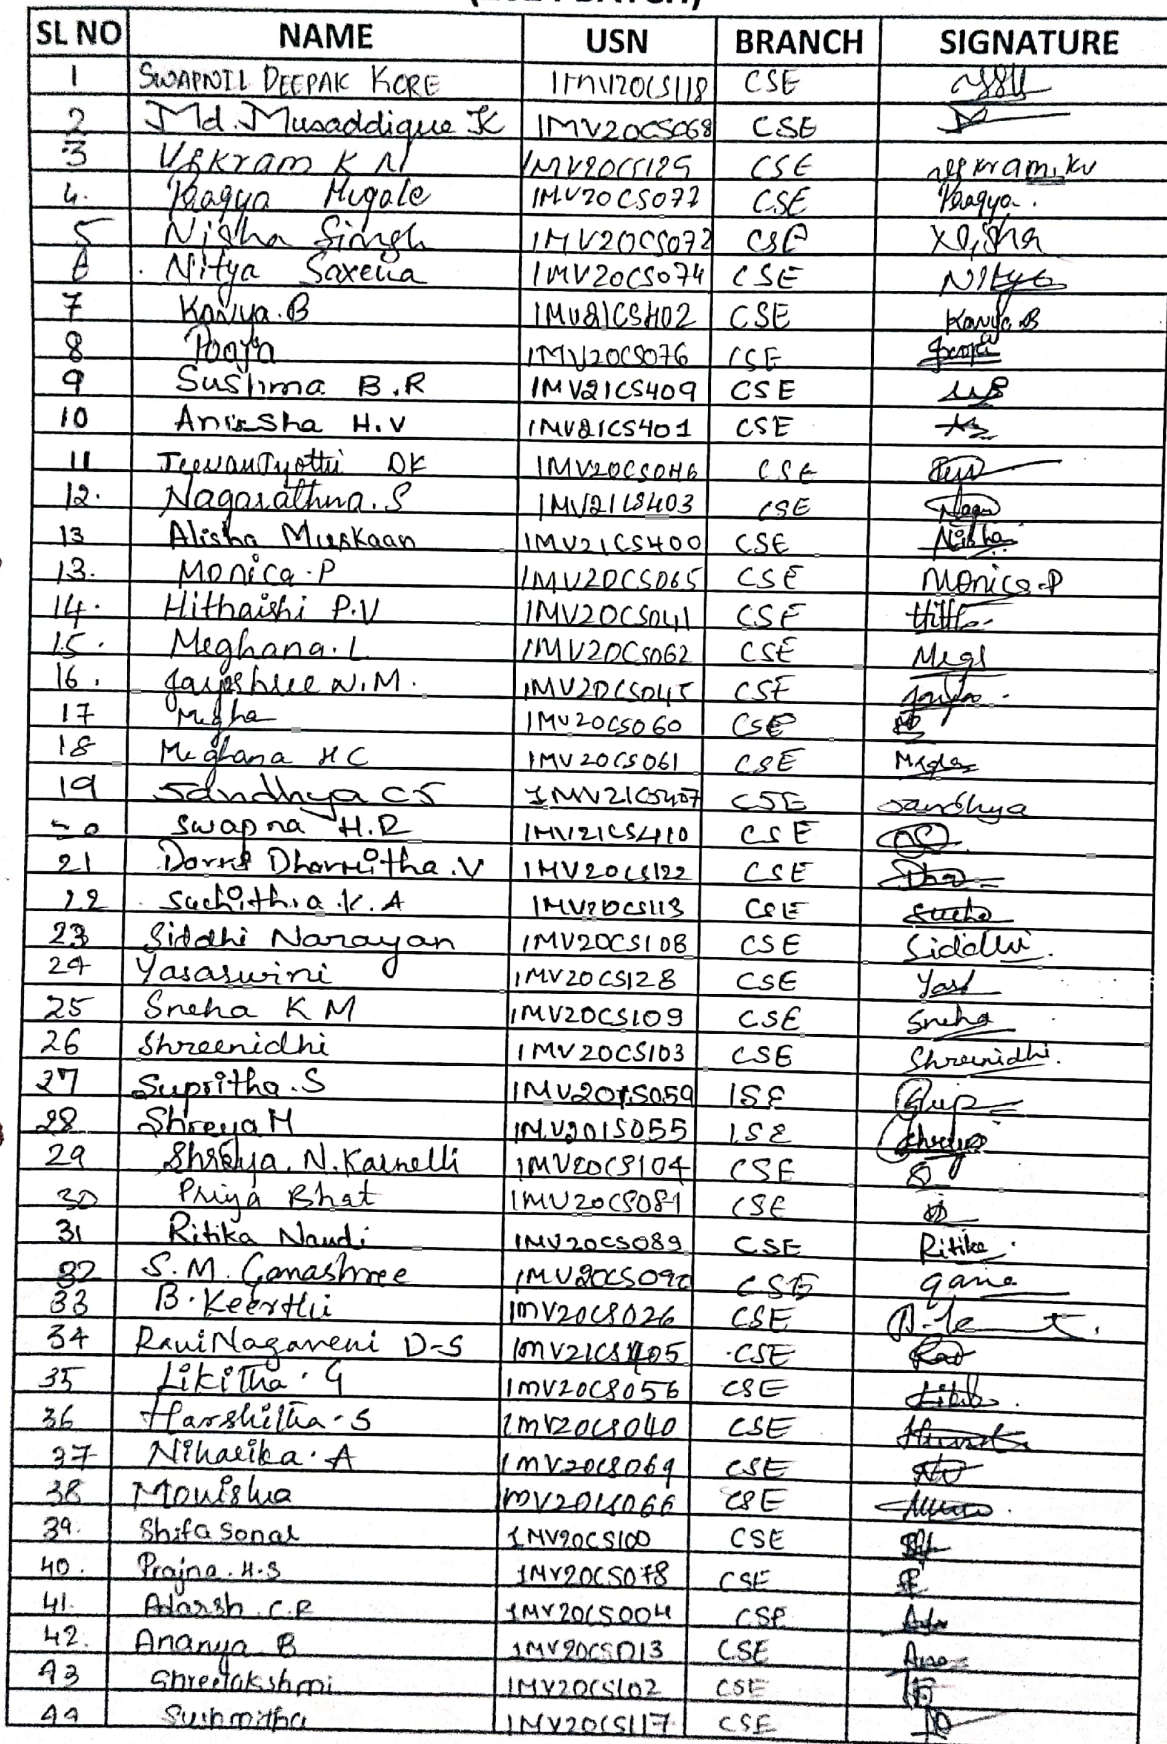 SL NO NAME USN BRANCH SIGNATURE
1 SWAPNIL DEEPAK KORE 1MV20CS118 CSE
2 Md. Musaddique K 1MV20CS068 CSE
3 Vikram K N 1MV20CS125 CSE Vikram.KN
4. Pragya Mugale 1MV20CS077 CSE Pragya.
5 Nisha Singh 1MV20CS072 CSE Nisha
6 Nitya Saxena 1MV20CS074 CSE Nitya
7 Kavya.B 1MV21CS402 CSE Kavya.B
8 Pooja 1MV20CS076 CSE Pooja
9 Sushma B.R 1MV21CS409 CSE
10 Anissha H.V 1MV21CS401 CSE
11 JeevanJyothi DK 1MV20CS046 CSE
12. Nagarathna.S 1MV21CS403 CSE Naga
13 Alisha Muskaan 1MV21CS400 CSE Alisha
13. Monica.P 1MV20CS065 CSE Monica.P
14. Hithaishi P.V 1MV20CS041 CSE Hith
15. Meghana.L 1MV20CS062 CSE Megh
16. Jayashree N.M. 1MV20CS045 CSE
17 Megha 1MV20CS060 CSE
18 Meghana H C 1MV20CS061 CSE
19 Sandhya CS 1MV21CS407 CSE Sandhya
20 Swapna H.R 1MV21CS410 CSE
21 Dharmitha.V 1MV20CS122 CSE
22 Suchithra.K.A 1MV20CS113 CSE Suchi
23 Siddhi Narayan 1MV20CS108 CSE Siddhi.
24 Yasaswini 1MV20CS128 CSE Yash
25 Sneha K M 1MV20CS109 CSE Sneha
26 Shreenidhi 1MV20CS103 CSE Shreenidhi.
27 Supritha.S 1MV20IS059 ISE Sup
28 Shreya M 1MV20IS055 ISE Shreya
29 Shreya.N.Kainelli 1MV20CS104 CSE
30 Priya Bhat 1MV20CS081 CSE
31 Ritika Nandi 1MV20CS089 CSE Ritika.
32 S.M. Ganashree 1MV20CS090 CSE gana
33 B.Keerthi 1MV20CS026 CSE
34 RaviNagaveni D-S 1MV21CS405 CSE
35 Likitha.G 1MV20CS056 CSE
36 Harshitha-S 1MV20CS040 CSE
37 Niharika.A 1MV20CS069 CSE
38 Mouisha 1MV20CS066 CSE
39. Shifa Sonal 1MV20CS100 CSE
40. Prajna.H.S 1MV20CS078 CSE
41. Adarsh.C.R 1MV20CS004 CSE
42. Ananya B 1MV20CS013 CSE
43 Shreelakshmi 1MV20CS102 CSE
44 Sushmitha 1MV20CS117 CSE